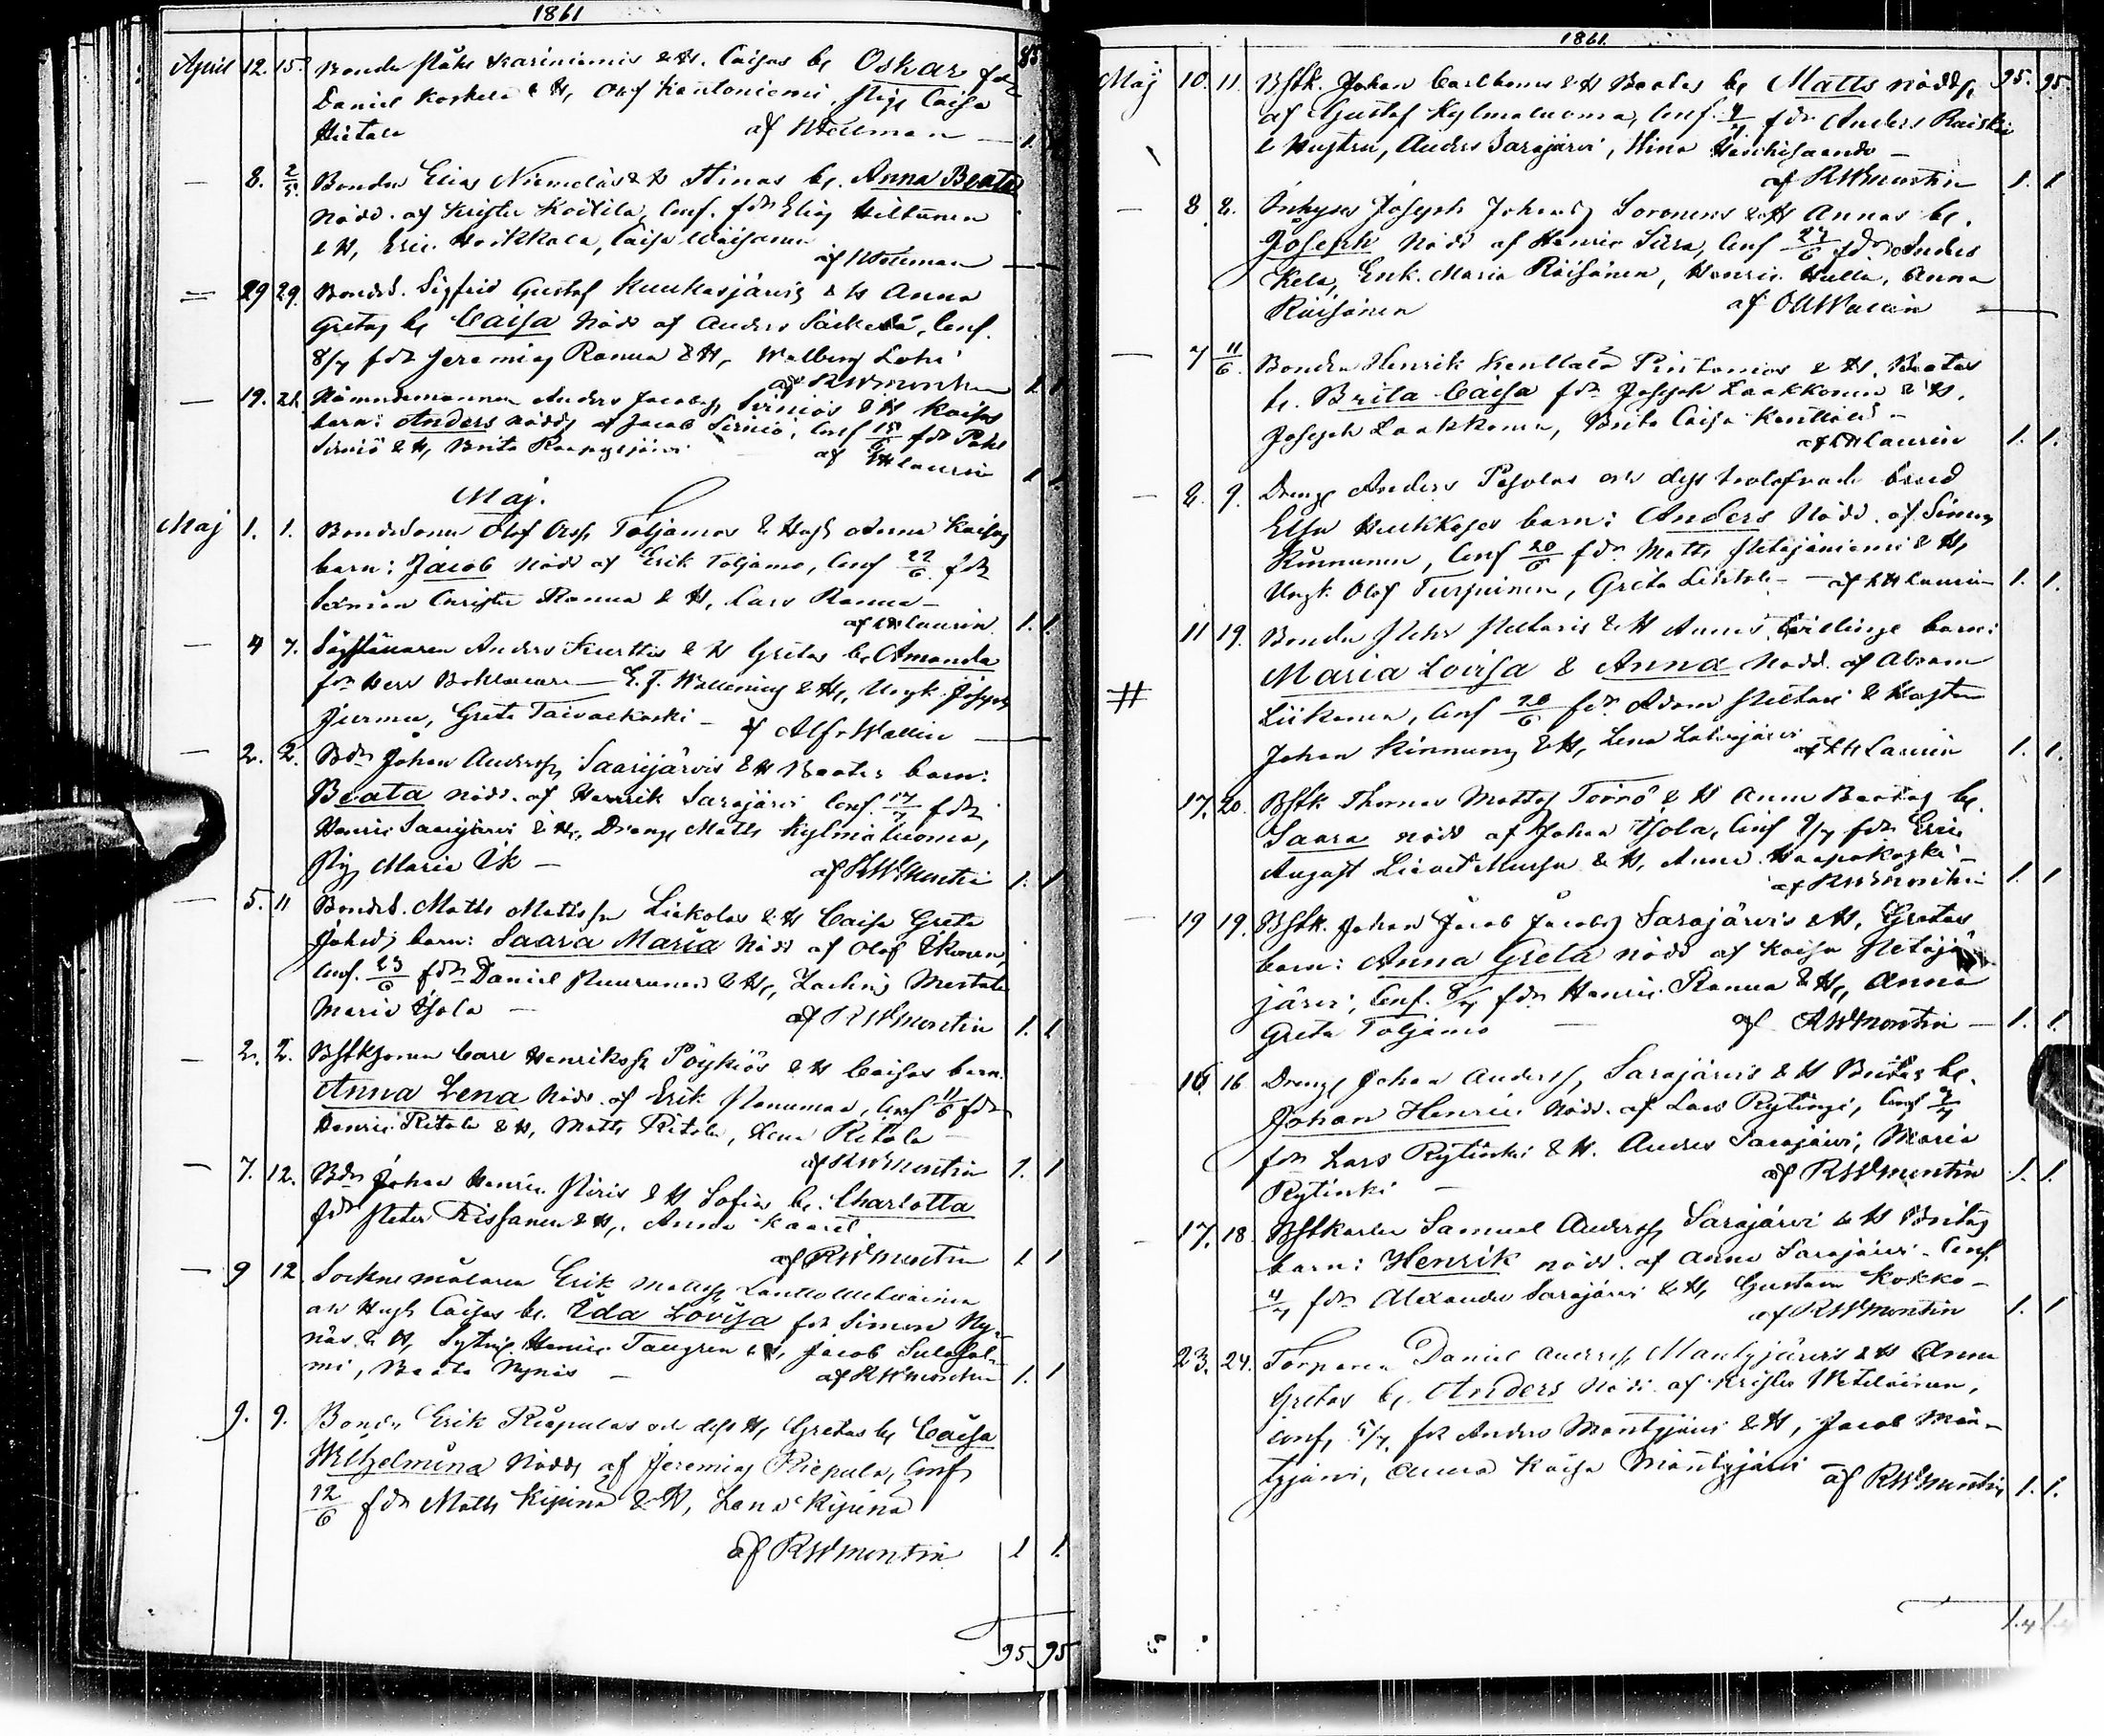 1861
April 12. 15. Bonde Påhr Kariniemis & H. Caisas bn Oskar fdr 85
Daniel Koskela & H, Olof Kantoniemi, Pig. Caisa
Hietala af Wellman 1.
8. 2/5. Bonden Elias Niemeläs & H Stinas bn. Anna Beata
Nödd. af Krister Koitila, Conf. fdr Elias Hiltunen
& H, Eric Heikkala, Caisa Wäisänen
af Wellman
29 29. Bondes. Sigfrid Gustaf Kuukasjärvis & H Anna
Gretas bn Caisa Nödd af Anders Säckelä, Conf.
8/7 fdr Jeremias Ranua & H, Walborg Lohi
af RWmontin 1. 1
19. 21. Nämndemannen Anders Jacobss Sirniös & H Kaisas
barn: Anders nödd af Jacob Sirniö, Conf 15/6 fdr Påhr
Sirniö & H, Brita
af LHLaurin 1 1.
Maj.
Maj 1. 1. Bondesonen Olof Ersss Toljamos & Hust Anna Kaisas
barn: Jacob Nödd af Erik Toljamo, Conf 22/6. fdr
Christer Ranua & H, Lars Ranua
af LHLaurin 1. 1.
4 7. Anders Kurttis & H Gretas bn Amanda
fdr Herr Bokhållare E. F. Wallening & H, Ungk. Joseph
Jurmu, Greta Taivalkoski
af Alfr Wallin
2. 2. Bdn Johan Anderss Saarijärvis & H Beatas barn:
Beata nödd. af Henrik Sarajärvi Conf. 17/7 fdr
Henric Saarijärvi & H, Dreng Matts Kylmäluoma,
Pig. Maria Ik
af RWmontin 1. 1
5. 11 Bondes. Matts Mattsson Liekolas & H Caisa Greta
Johsdr barn: Saara Maria Nödd af Olof Ikonen
Conf. 23/6 fdr Daniel Nuurunen & H, Zachris Mertala
Maria Ojola
af RWmontin 1. 1
2. 2. Bstksonen Carl Henrikss Pöykiös & H Caisas barn
Anna Lena Nödd. af Erik Nonuman, Conf 11/6 fdr
Henric Ritola & H, Matts Ritola, Lena Ritola
af RWmontin 1. 1
7. 12. Bdn Johan Henric Piris & H Sofias bn. Charlotta
fdr Peter Tissanen & H, Anna Kaarit
af RWmontin 1 1
9 12 Socknemålaren Erik Matss
och Hust Caisas bn. Ida Lovisa fdr Simon Ny-
näs & H, Sytning Henric Taugren & H, Jacob Sulasal-
mi, Beata Nynäs
af RWmontin 1. 1
9. 9. Bonden Erik Riepulas och dess H, Gretas bn Caisa
Wilhelmina Nödds af Jeremias Riepula, Conf
12/6 fdr Matts Kipinä & H, Lena Kipinä
af RWmontin 1 1.
95 95
1861.
Maj 10. 11. Bstk. Johan Carlboms & H Beatas bn Matts nödds, 95. 95.
af Gustaf Kylmäluoma, Conf. 4/7. fdr Anders Raiski
& Hustru, Anders Sarajärvi, Stina
af RWmontin 1. 1
8 8. Inhyses Joseph Johanss Soronens & H Annas bn.
Joseph Nödd af Henric Sara, Conf 27/6 fdr Anders
Kela, Enk. Maria Räisänen, Henric Hulla, Anna
Räisänen af OAWalein
7 11/6. Bonden Henrik Kenttälä Pintamos & H. Beatas
b. Brita Caisa fdr Joseph Laakkonen & H.
Joseph Laakkonen, Brita Caisa Kenttälä
af LHLaurin 1. 1.
8. 9. Dreng Anders Pesolas och dess trolofvade brud
Elsa Heikkas barn: Anders Nödd. af Simon
Kinnunen, Conf 20/6 fdr Matts Petäjäniemi & H,
Ungk. Olof Turpeinen, Greta Lehtola af LHLaurin 1. 1.
11 19. Bonden Pehr Pietaris & H Annas tvillinge barn:
Maria Lovisa & Anna Nödd. af Abram
# Liikanen, Conf 20/6 fdr Adam Pietari & Hustru
Johan Kinnunen & H, Lena Latvajärvi
af LHLaurin 1. 1.
17. 20. Bstk. Thomas Mattss Törrö & H Anna Beatas bn.
Saara nödd af Johan Ojola, Conf 9/7 fdr Eric
August & H, Anna Haapakoski
af RWmontin 1. 1
19 19. Bstk. Johan Jacob Jacobss Sarajärvis & H, Gretas
barn: Anna Greta nödd af Kaisa Petäjä-
järvi; Conf. 8/7 fdr Henric Ranua & H, Anna
Greta Toljamo af RWmontin 1. 1.
16 16 Dreng Johan Anderss, Sarajärvis & H Britas bn.
Johan Henric Nödd. af Lars Rytingi, Conf 9/7
fdr Lars Rytinki & H. Anders Sarajärvi, Maria
Rytinki af RWmontin 1. 1.
17. 18. Bstkarlen Samuel Anderss Sarajärvi & H Britas
barn: Henrik nödd. af Anna Sarajärvi. Conf.
4/7 fdr Alexander Sarajärvi & H, Gustava Kokko
af RWmontin 1. 1
23. 24. Torparen Daniel Anderss Mäntyjärvis & H Anna
Gretas bn. Anders Nödd. af Krister Metiläinen,
Conf, 5/7, fdr Anders Mäntyjärvi & H, Jacob Män-
tyjärvi, Anna Kaisa Mäntyjärvi af RWmontin 1. 1.